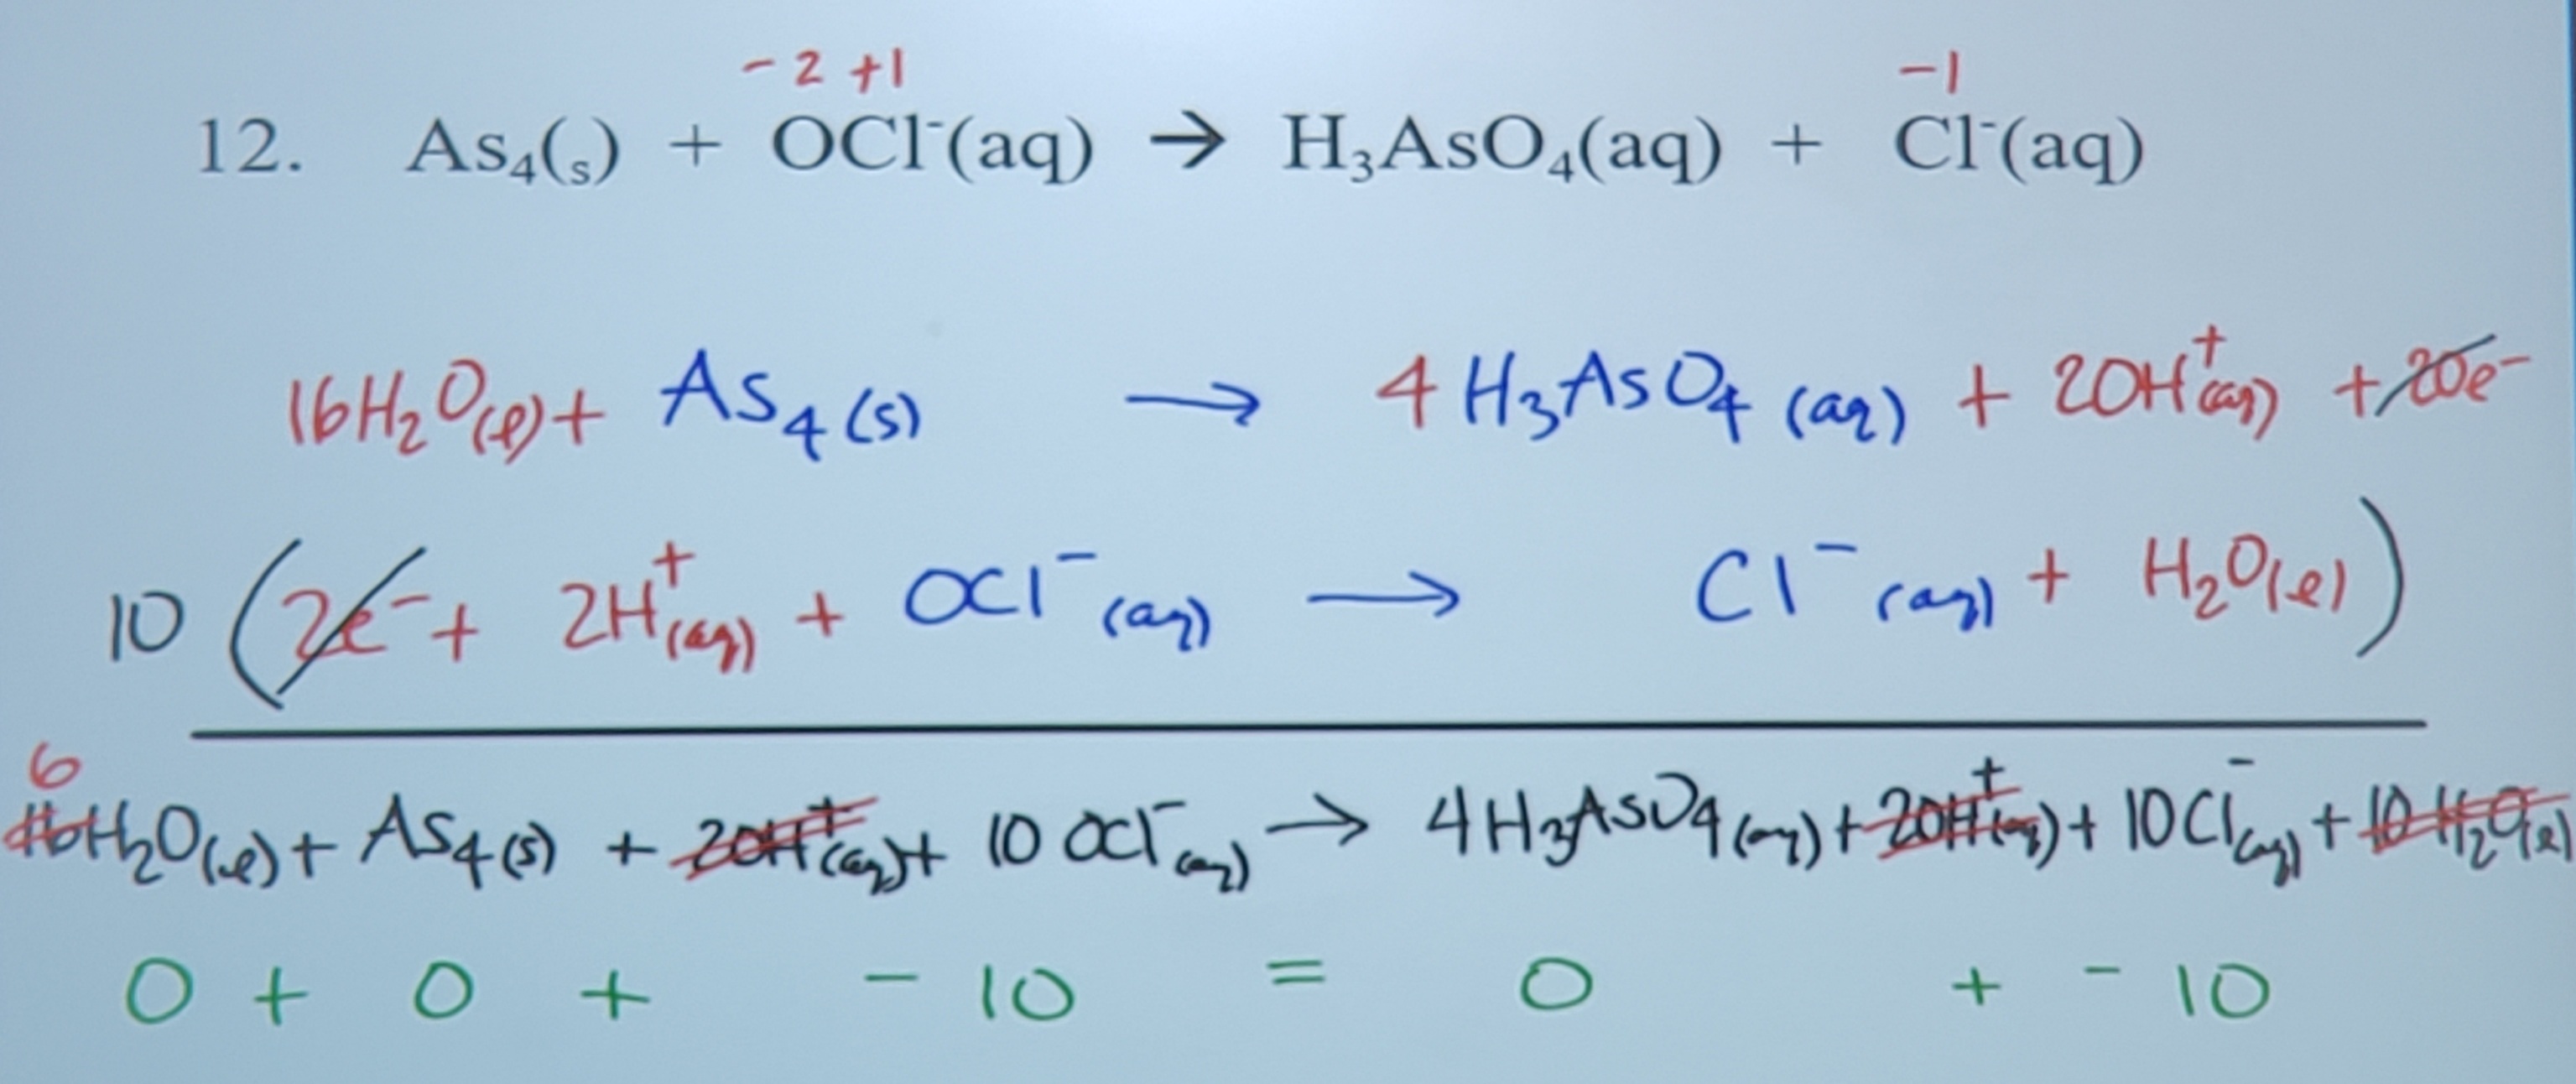 -2 +1 -1
12. As₄(s) + OCl⁻(aq) → H₃AsO₄(aq) + Cl⁻(aq)
16H₂O(l) + As₄(s) → 4H₃AsO₄(aq) + 20H⁺(aq) + 20e⁻
10 (2e⁻ + 2H⁺(aq) + OCl⁻(aq) → Cl⁻(aq) + H₂O(l))
6
16H₂O(l) + As₄(s) + 20H⁺(aq) + 10OCl⁻(aq) → 4H₃AsO₄(aq) + 20H⁺(aq) + 10Cl⁻(aq) + 10H₂O(l)
0 + 0 + -10 = 0 + -10